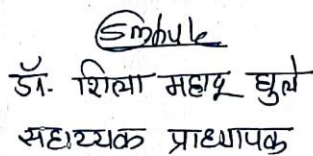 Smbule
डॉ. शिला महादू घुले
सहाय्यक प्राध्यापक